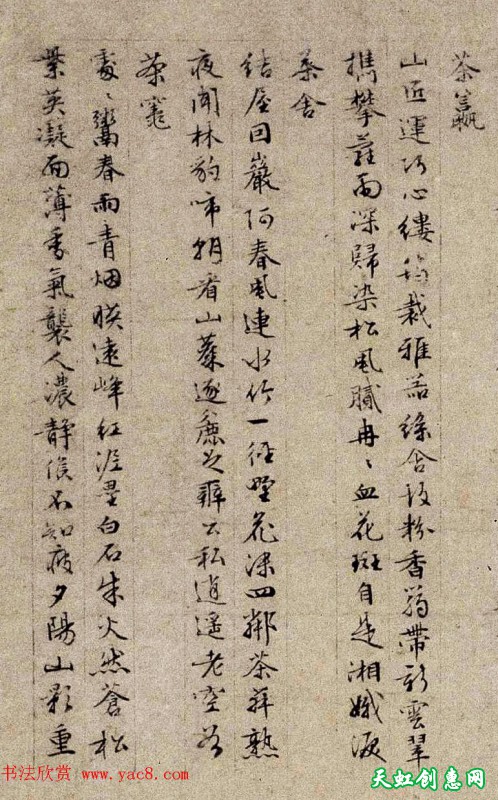 茶籯
山匠運巧心縷筠裁雅器綠含故粉香篛帶新雲翠
攜攀蘿雨深歸染松風膩冉〻血花斑自是湘娥淚
茶舍
結屋因巖阿春風連水竹一徑野花深四鄰茶荈熟
夜聞林豹啼朝看山麋逐麤足辦公私逍遙老空谷
茶竈
處〻鬻春雨青烟映遠峰紅泥壘白石朱火然蒼松
紫英凝面薄香氣襲人濃靜候不知疲夕陽山影重
书法欣赏:www.yac8.com
天虹创惠网